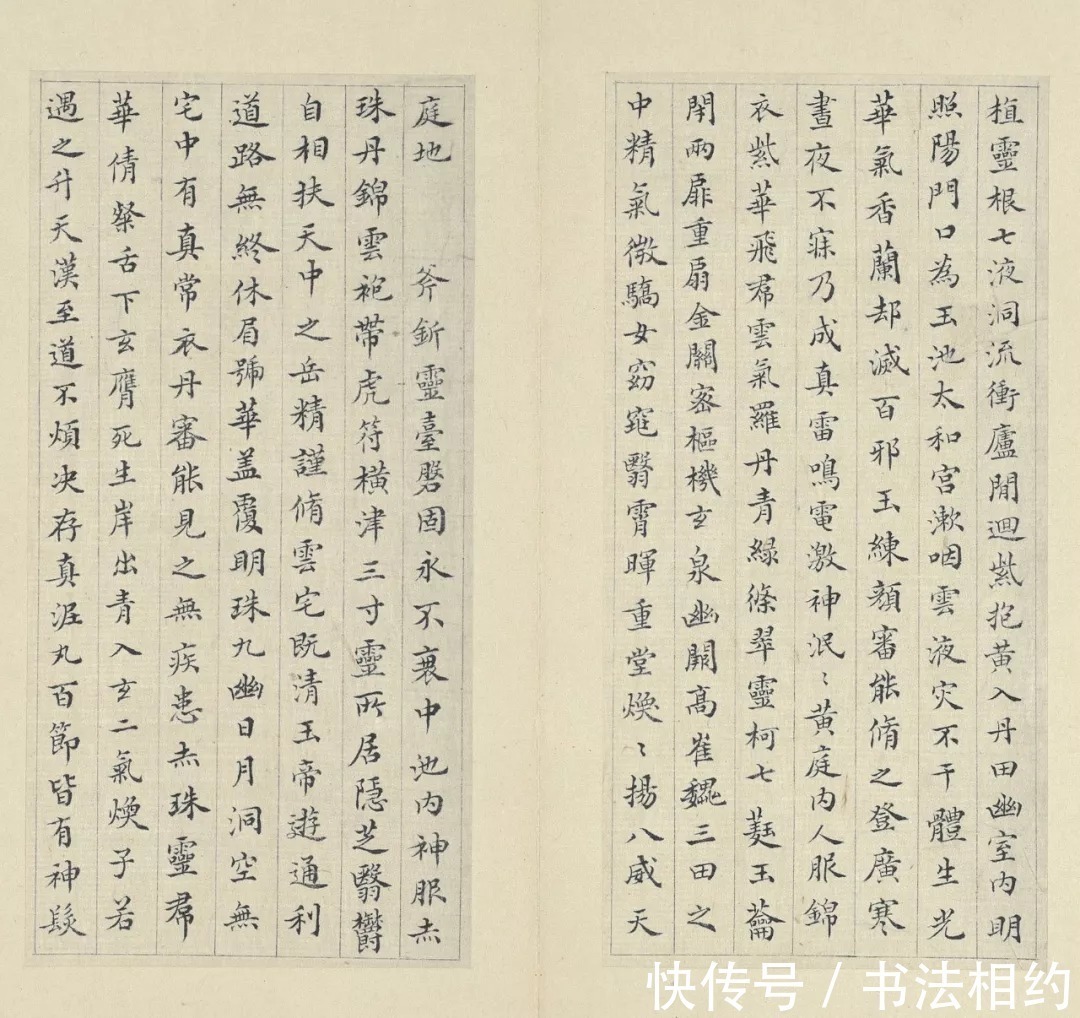 植靈根七液洞流衝廬間迴紫抱黃入丹田幽室內明
照陽門口為玉池太和宮漱咽雲液灾不干體生光
華氣香蘭却滅百邪玉練顏審能脩之登廣寒
晝夜不寐乃成真雷鳴電激神泯〻黃庭內人服錦
衣紫華飛帬雲氣羅丹青緑條翠靈柯七蕤玉籥
閈兩扉重扇金關密樞機玄泉幽闕高崔巍三田之
中精氣微驕女窈窕翳霄暉重堂煥〻揚八威天
庭地 斧釿靈臺磐固永不衰中池內神服赤
珠丹錦雲袍帶虎符橫津三寸靈所居隱芝翳欝
自相扶天中之岳精謹脩雲宅既清玉帝遊通利
道路無終休眉號華盖覆明珠九幽日月洞空無
宅中有真常衣丹審能見之無疾患赤珠靈帬
華倩粲舌下玄膺死生岸出青入玄二氣煥子若
遇之升天漢至道不煩决存真泥丸百節皆有神髮
快传号 / 书法相约